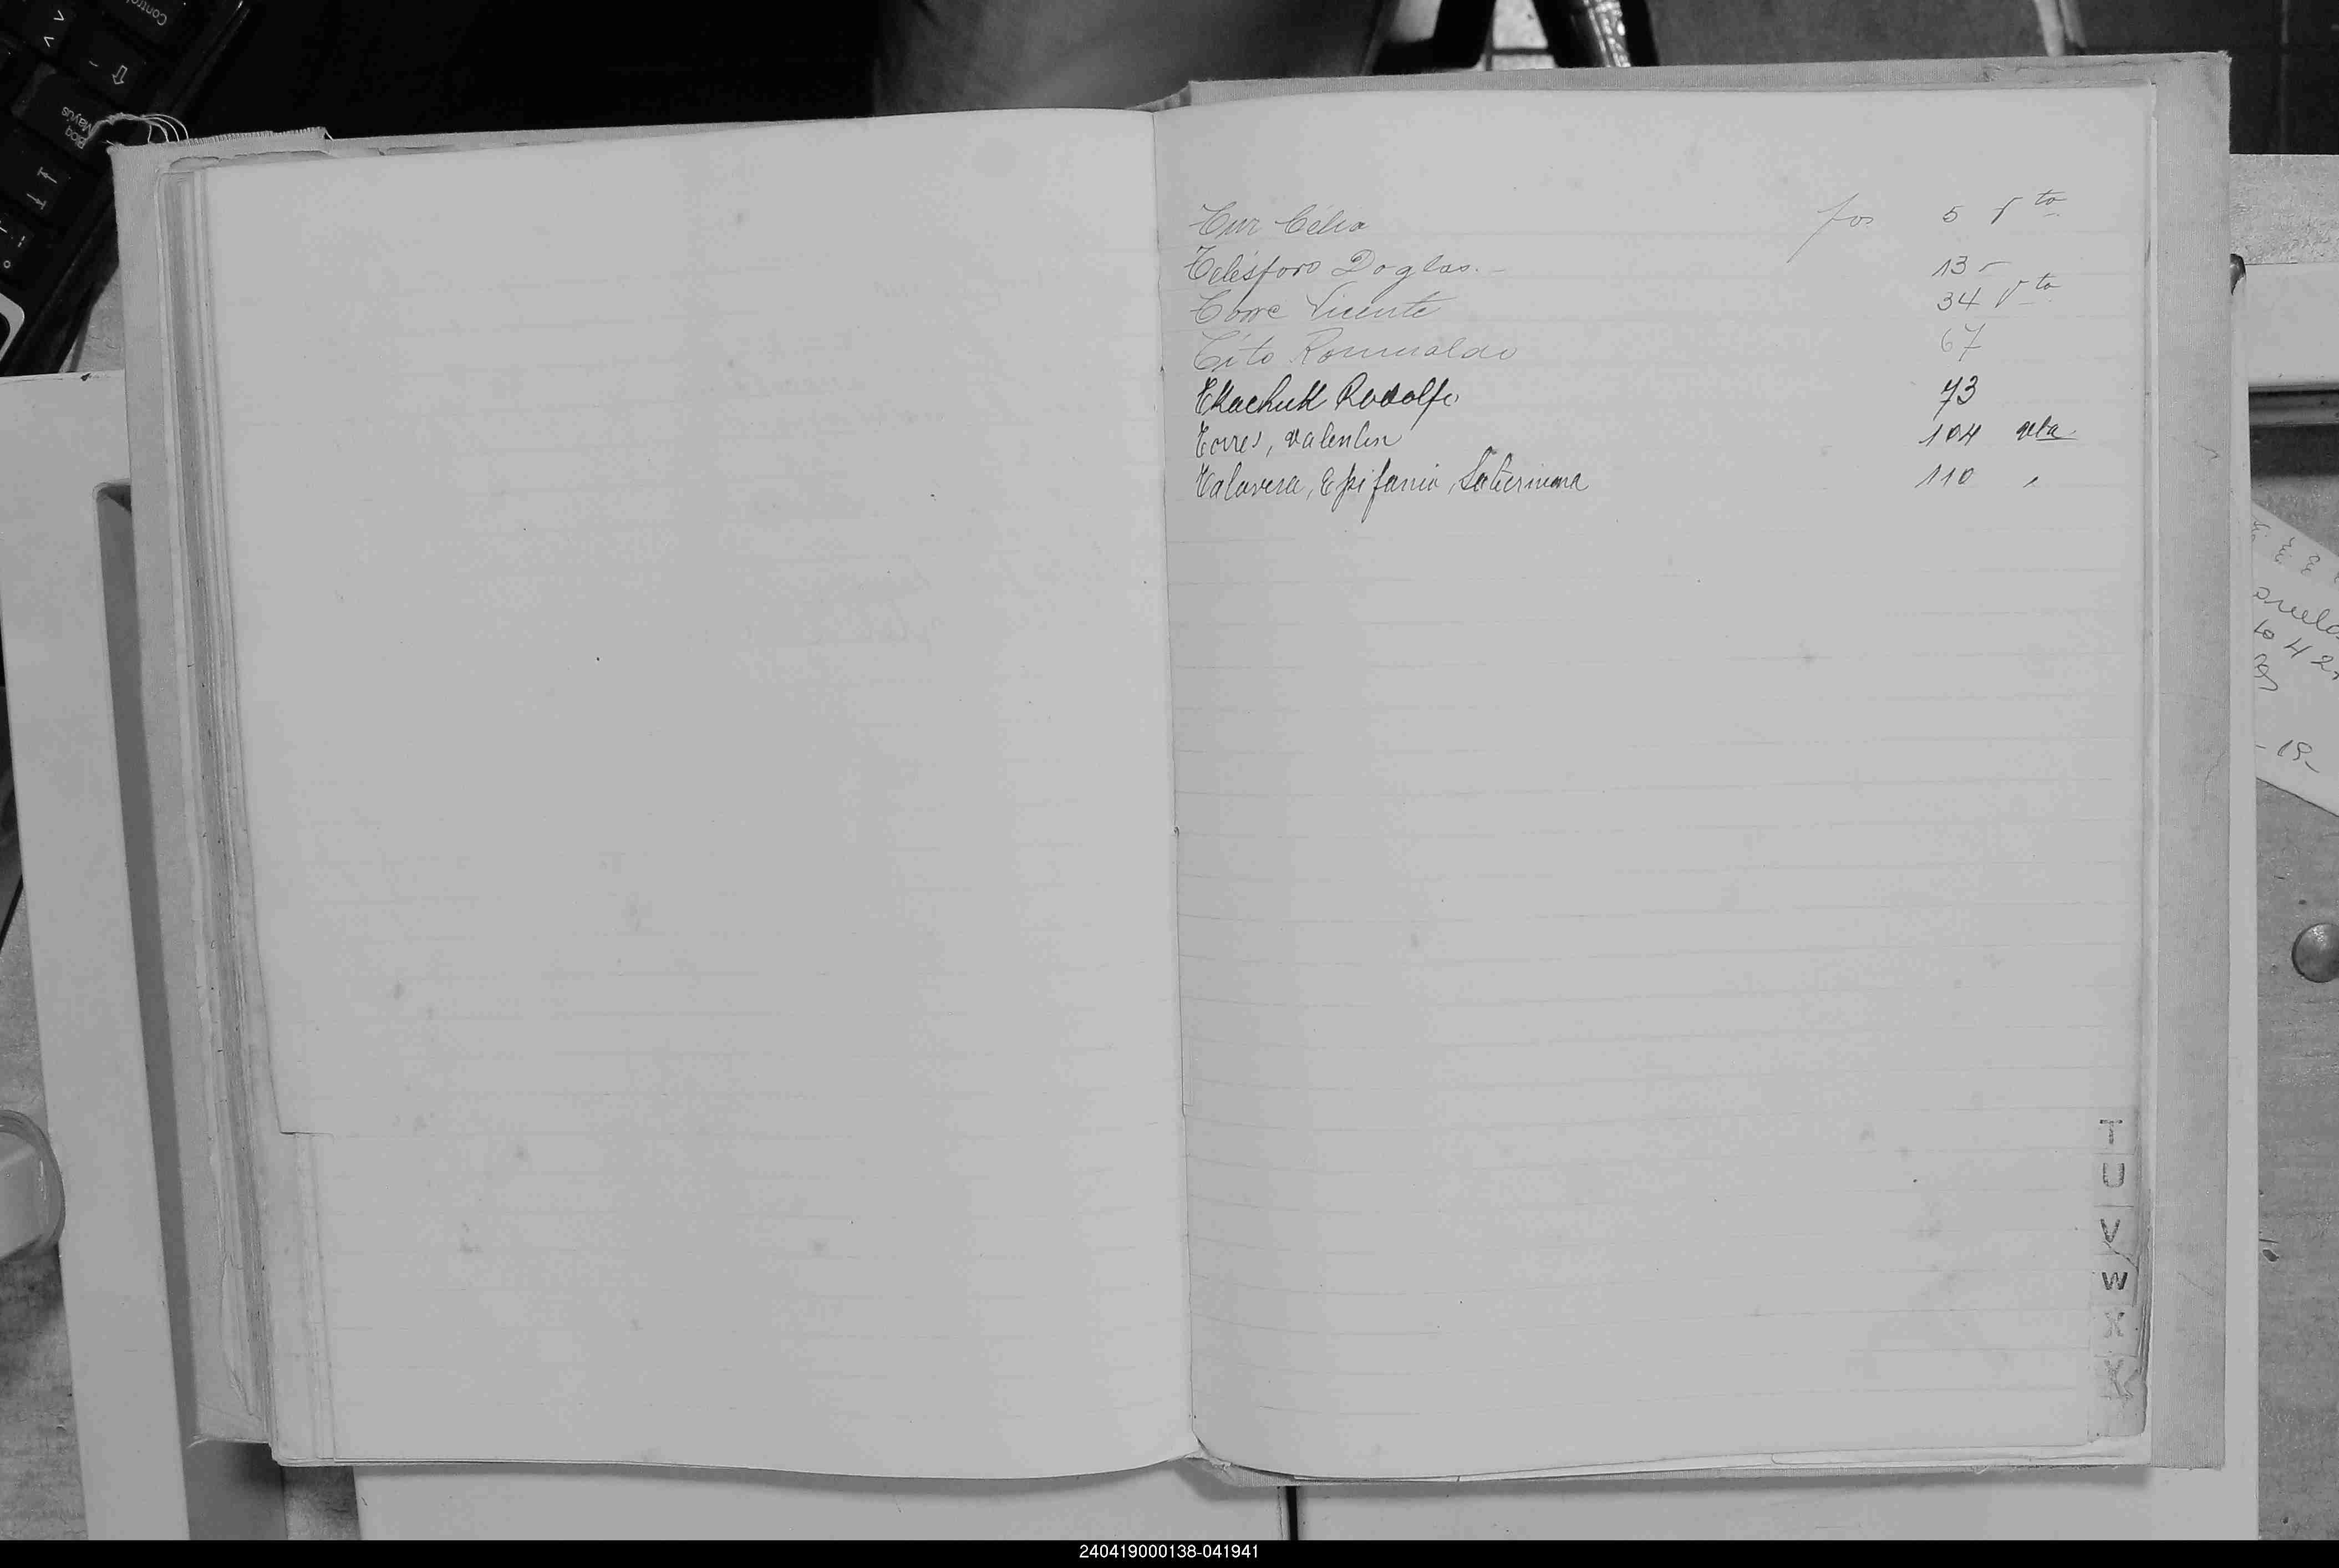 Tur Célia fos 5 Vto
Telésforo Doglas. - 13 -
Torre Vicente 34 Vto
Tito Romualdo 67
Tkachuk Rodolfo 73
Torres, Valentin 104 vta
Talavera, Epifania, Saturnina 110 "
T
U
V
W
X
Y
Control
Bloq
Mayús
240419000138-041941